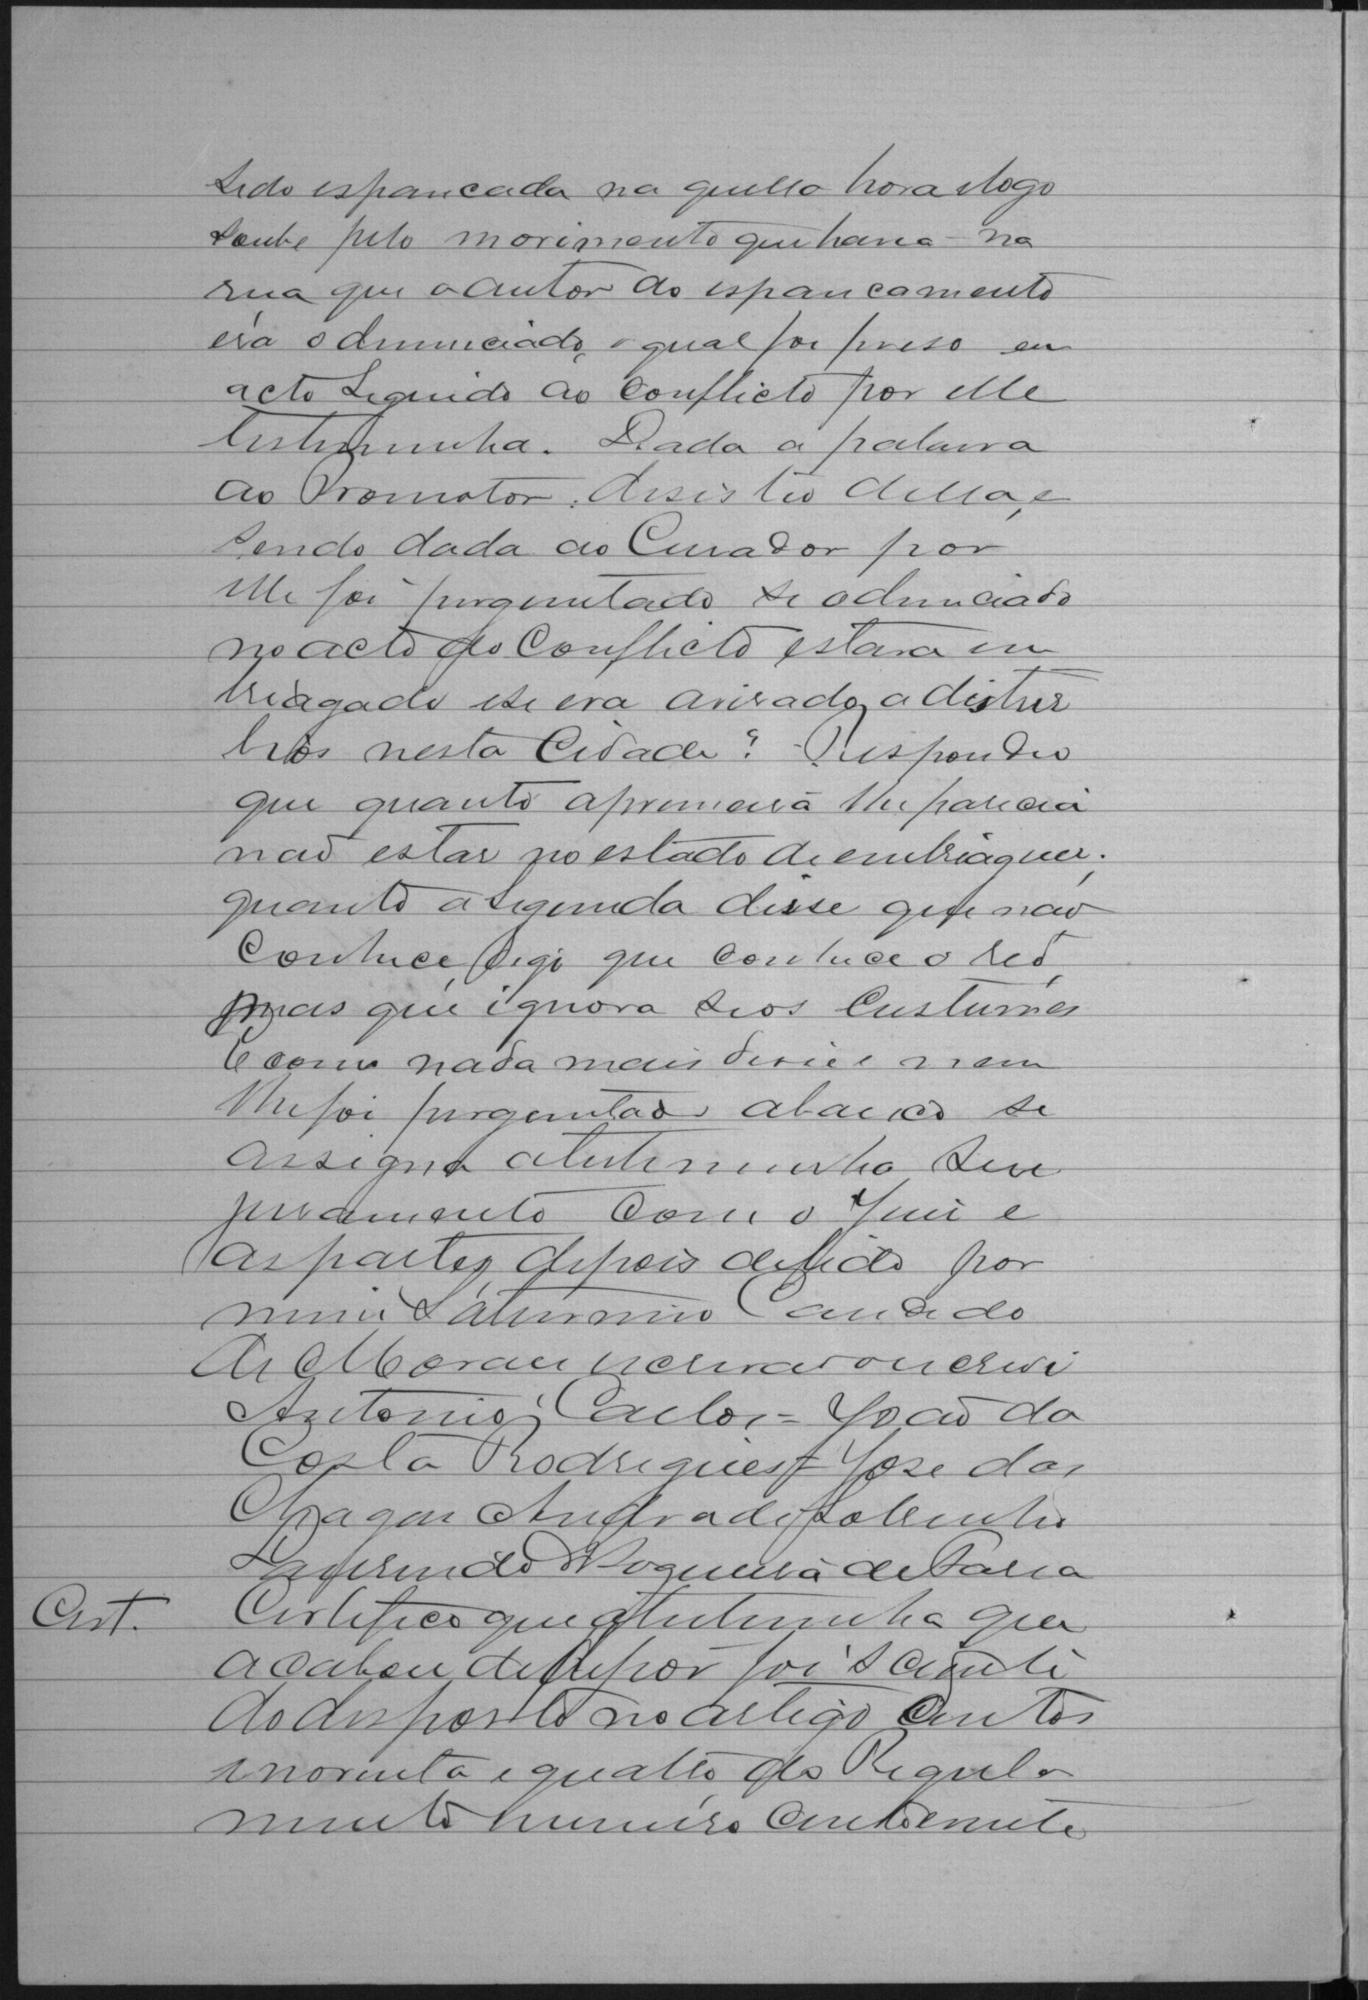 sido espancada na quella hora e logo
soube pelo movimento que havia na
rua que o autor do espancamento
era o denunciado, o qual foi preso em
acto seguido ao conflicto por elle
testemunha. Dada a palavra
ao Promotor, desistio della, e
sendo dada ao Curador por
elle foi perguntado se o denunciado
no acto do Conflicto estava em
briagado e se era avisado a distur
bios nesta Cidade? Respondeo
que quanto a primeira lhe parecia
não estar no estado de embriaguez;
quanto a segunda disse que não
conhece, digo que conhece o reo,
mas que ignora seos custumes
E como nada mais disse e nem
lhe foi perguntado abaixo se
assigna a testemunha seu
juramento com o Juiz e
as partes, depois de lido por
mim Saturnino Candido
de Moraes escrivão o escrevi
Antonio Carlos = João da
Costa Rodrigues = José das
Chagas Andrade Sobrinho
Laurindo Nogueira de Faria
Cert. Certifico que a testemunha que
acabou de depor foi sciente
do disposto no artigo centos
e noventa e quatro do Regula
mento numero cento e vinte